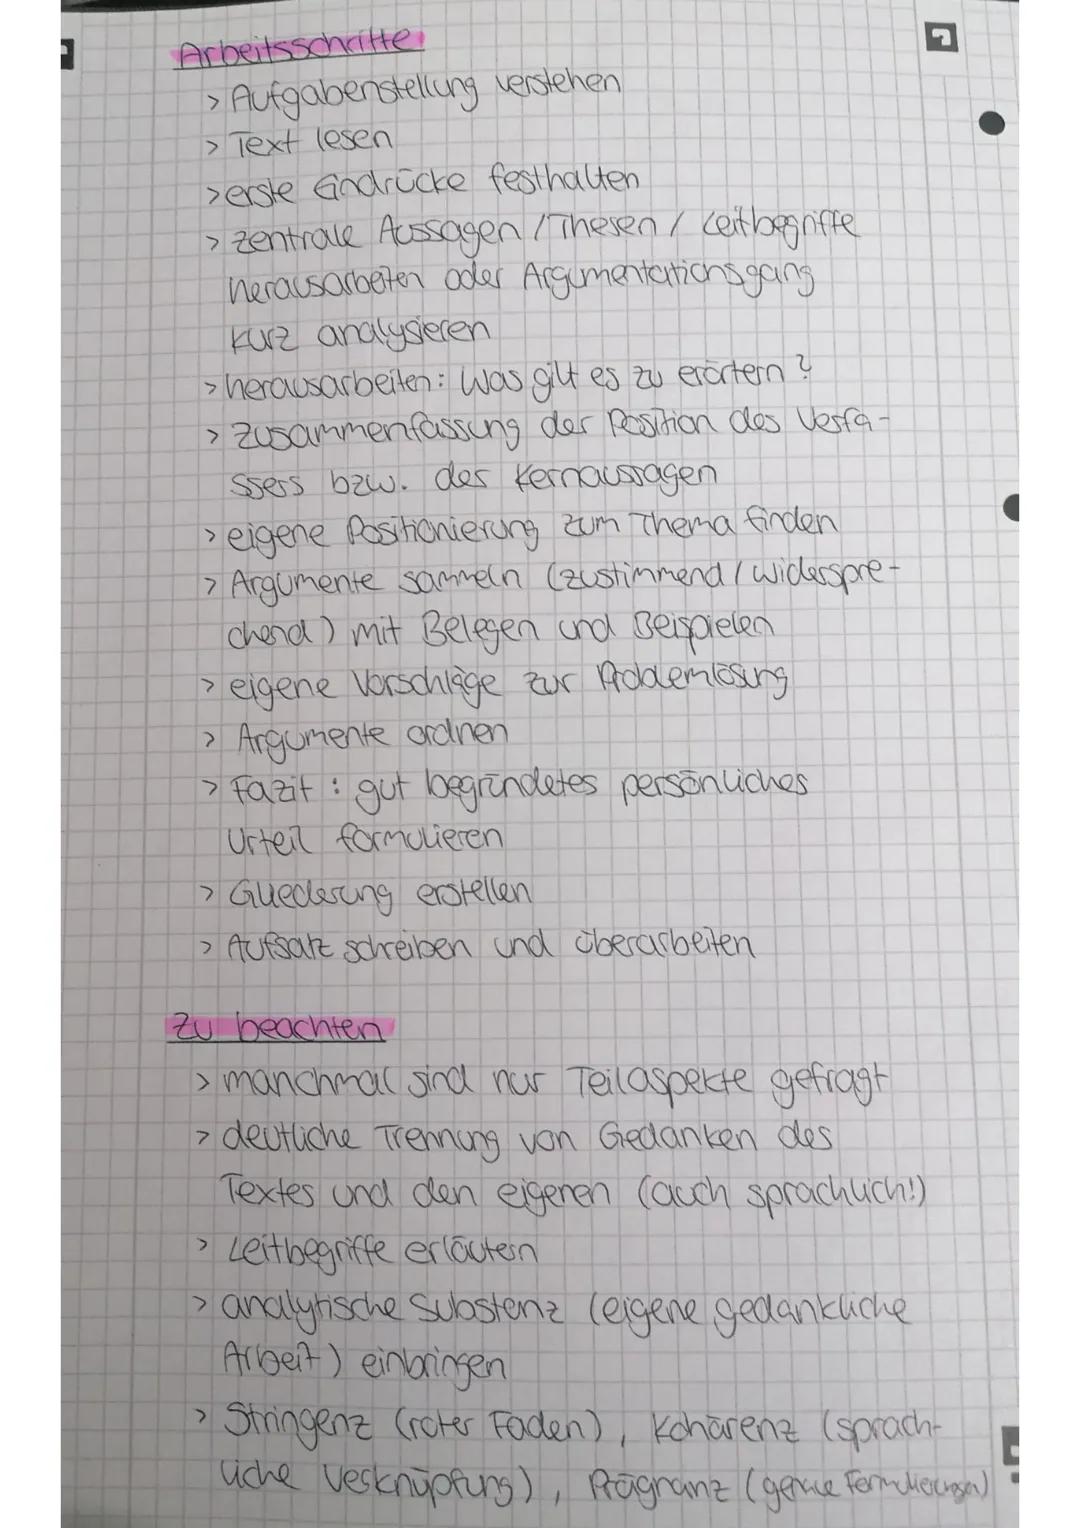 Arbeitsschritte
> Aufgabenstellung verstehen
> Text lesen
> erste Eindrücke festhalten
> zentrale Aussagen / Thesen / Leitbegriffe
herausarbeiten oder Argumentationsgang
kurz analysieren
> herausarbeiten: Was gilt es zu erörtern?
> Zusammenfassung der Position des Verfa-
ssers bzw. der Kernaussagen
> eigene Positionierung zum Thema finden
> Argumente sammeln (zustimmend / widerspre-
chend) mit Belegen und Beispielen
> eigene Vorschläge zur Problemlösung
> Argumente ordnen
> Fazit: gut begründetes persönliches
Urteil formulieren
> Gliederung erstellen
> Aufsatz schreiben und überarbeiten
Zu beachten
> manchmal sind nur Teilaspekte gefragt
> deutliche Trennung von Gedanken des
Textes und den eigenen (auch sprachlich!)
> Leitbegriffe erläutern
> analytische Substenz (eigene gedankliche
Arbeit) einbringen
> Stringenz (roter Faden), Kohärenz (sprach-
liche Verknüpfung), Prägnanz (genaue Formulierungen)